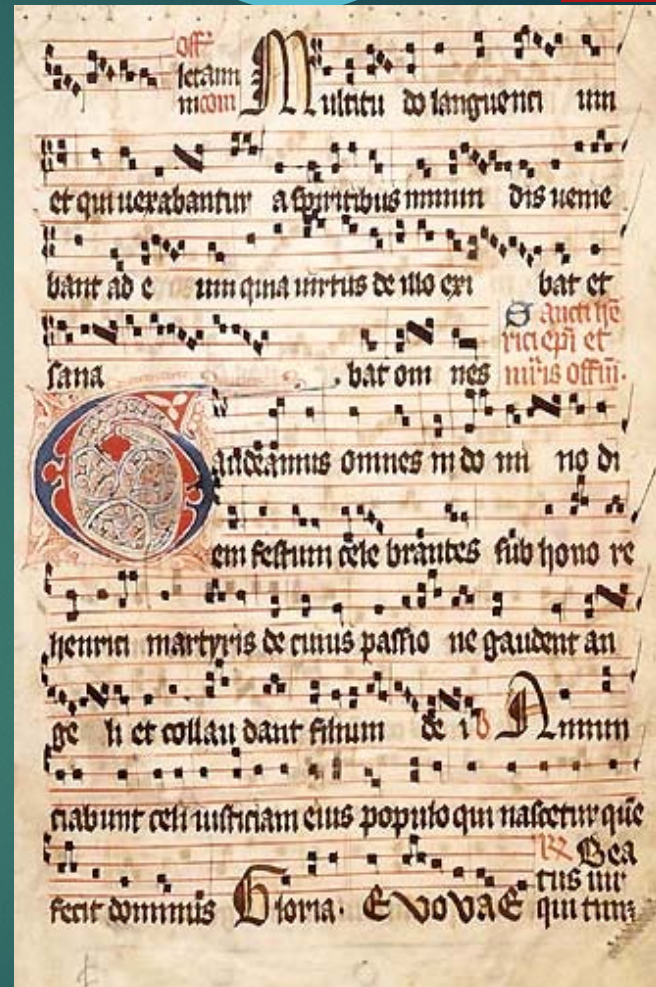 Offm
letam
mcom
Multitu do languenti um
et qui uexabantur a spiritibus inmun dis uenie
bant ad e um quia uirtus de illo exi bat et
sana bat om nes
Sancti he
rici epi et
mris Offm.
Gaudeamus omnes in do mi no di
em festum cele brantes sub hono re
henrici martyris de cuius passio ne gaudent an
ge li et collau dant filium de i V Annun
ciabunt celi iusticiam eius populo qui nascetur que
fecit dominus Gloria. EVOVAE
Bea
tus uir
qui tim;